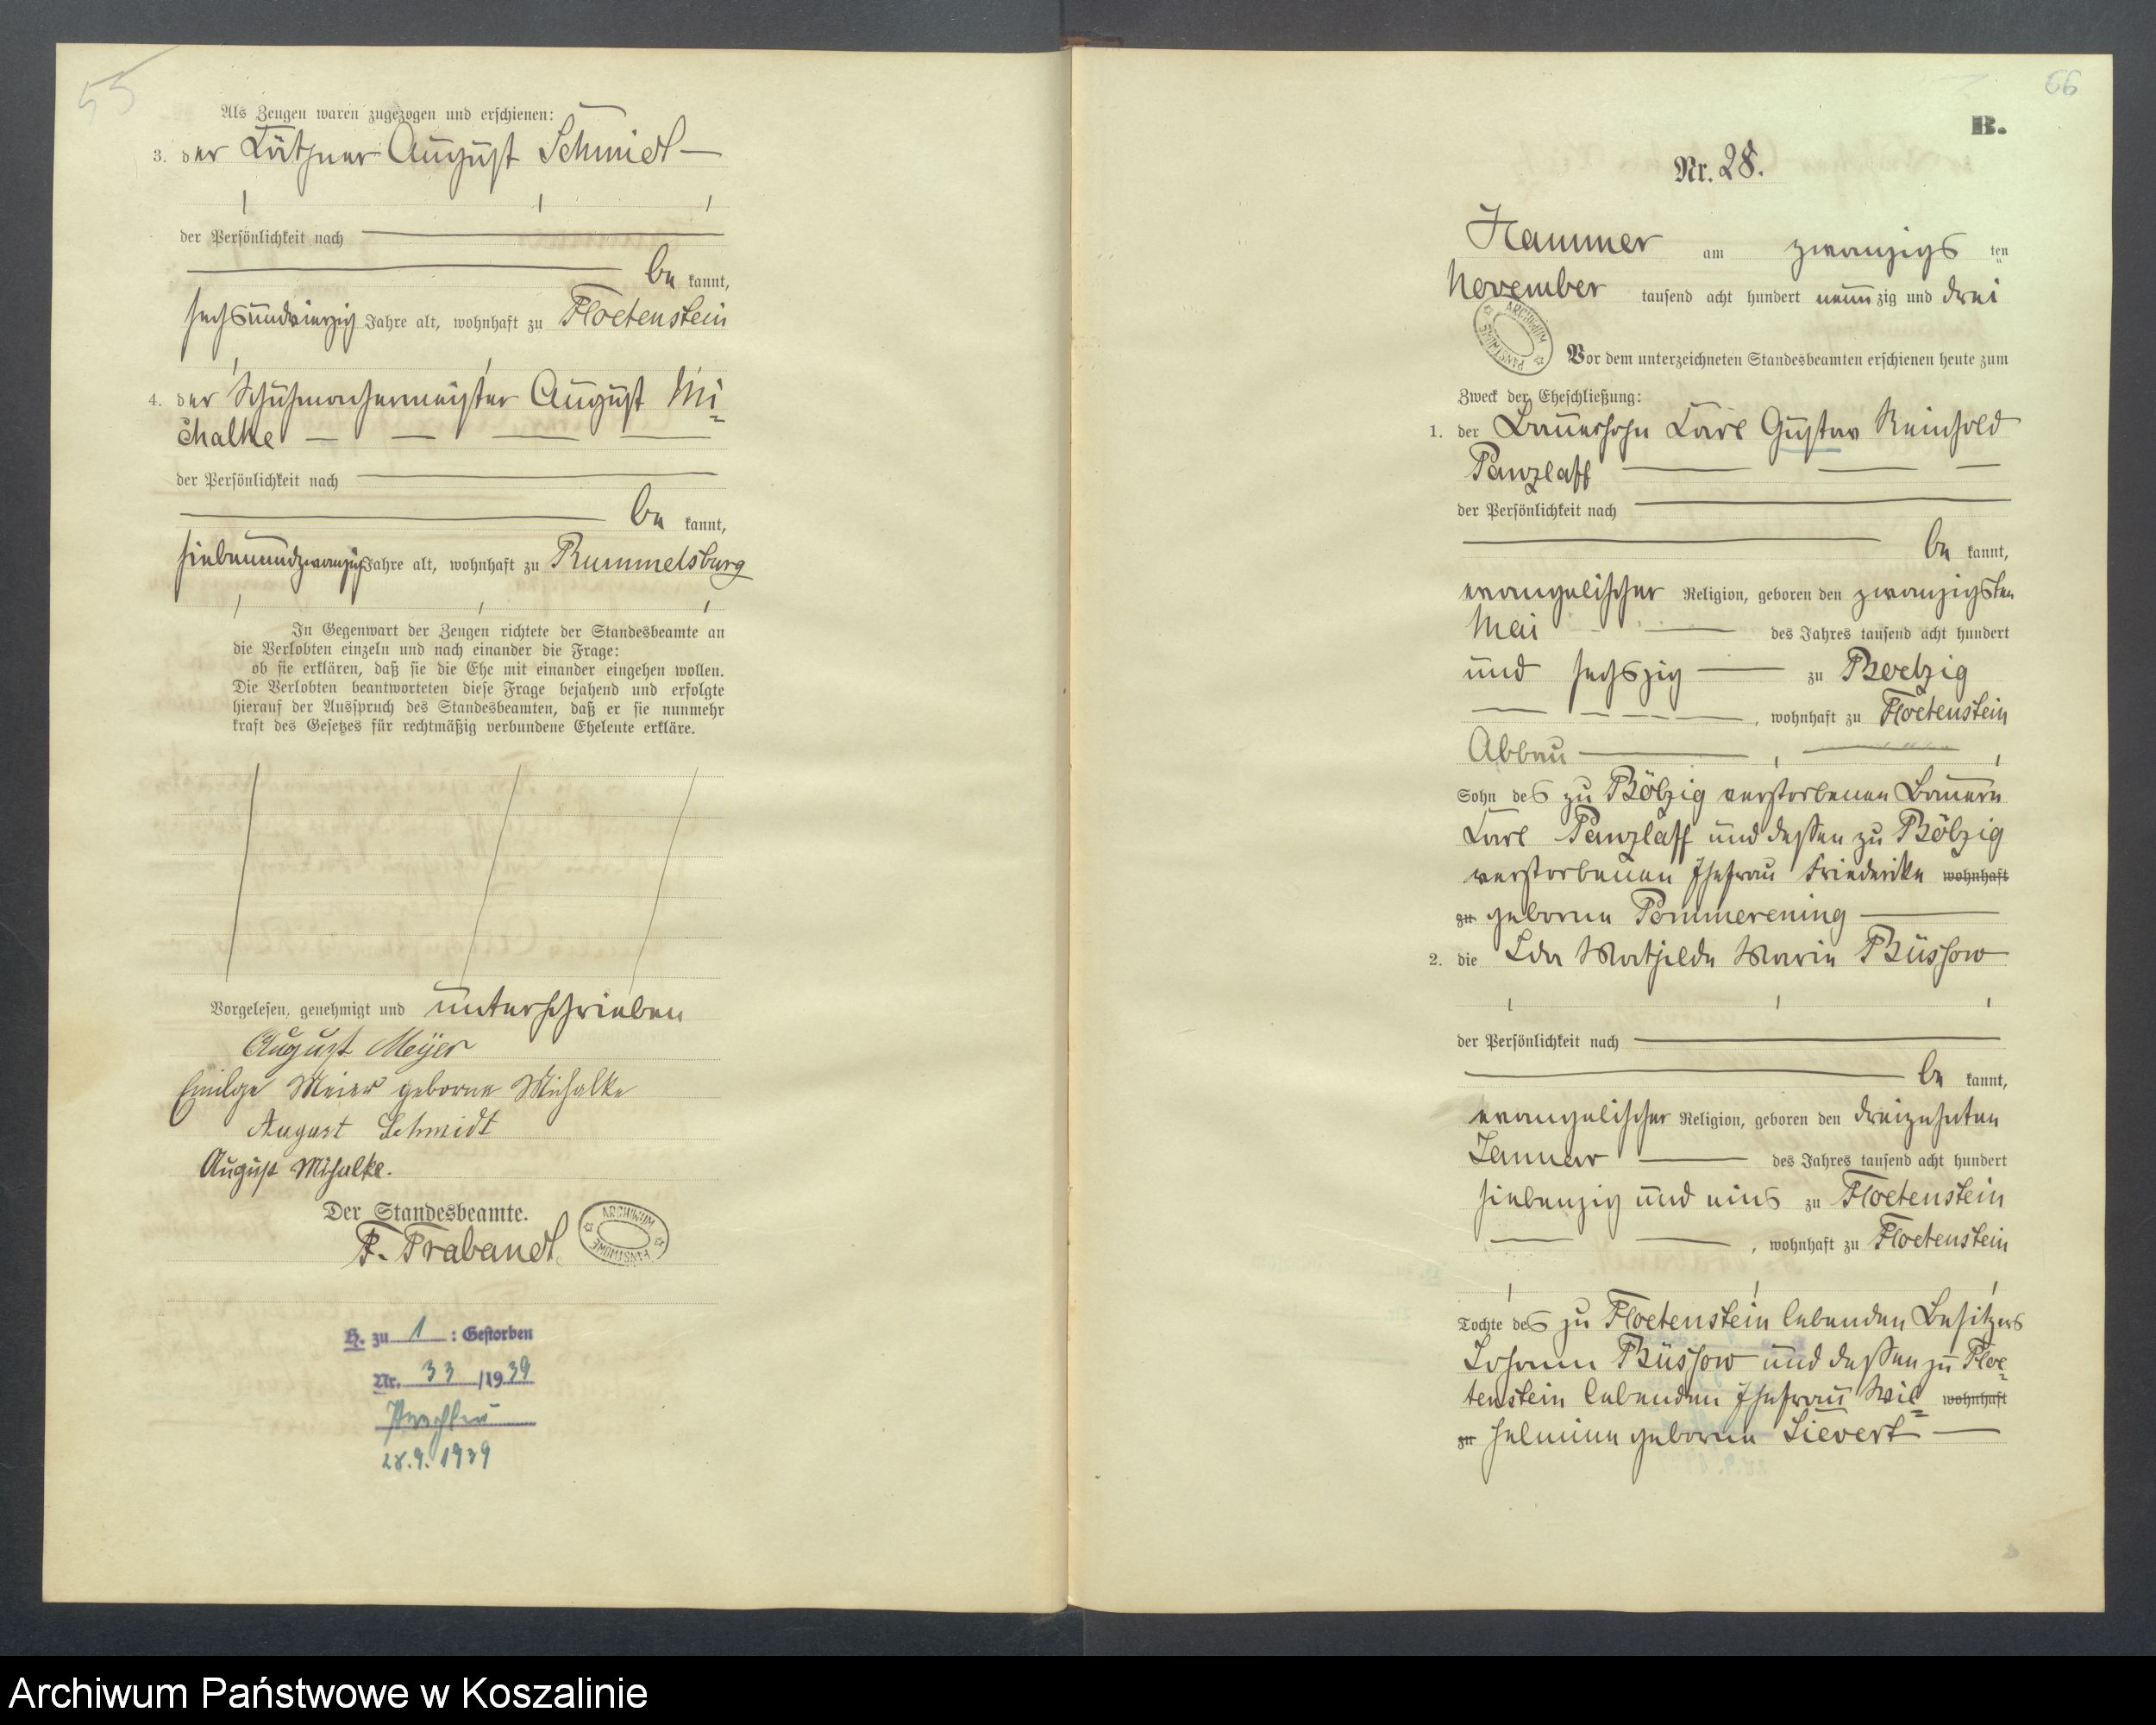 55
Als Zeugen waren zugezogen und erschienen:
3. der Käthner August Schmidt
der Persönlichkeit nach
be kannt,
sechsundvierzig Jahre alt, wohnhaft zu Floetenstein
4. der Schuhmachermeister August Mi=
chalke
der Persönlichkeit nach
be kannt,
siebenundzwanzig Jahre alt, wohnhaft zu Rummelsburg
In Gegenwart der Zeugen richtete der Standesbeamte an
die Verlobten einzeln und nach einander die Frage:
ob sie erklären, daß sie die Ehe mit einander eingehen wollen.
Die Verlobten beantworteten diese Frage bejahend und erfolgte
hierauf der Ausspruch des Standesbeamten, daß er sie nunmehr
kraft des Gesetzes für rechtmäßig verbundene Eheleute erkläre.
Vorgelesen, genehmigt und unterschrieben
August Meÿer
Meier geborne Michalke
August Schmidt
August Michalke.
Der Standesbeamte.
F. Trabandt
ARCHIWUM PAŃSTWOWE
H. zu 1 : Gestorben
Nr. 33 /1939
28.9.1939
66
B.
Nr. 28.
Hammer am zwanzigs ten
November tausend acht hundert neun zig und drei
ARCHIWUM PAŃSTWOWE
Vor dem unterzeichneten Standesbeamten erschienen heute zum
Zweck der Eheschließung:
1. der Bauersohn Carl Gustav Reinhold
Panzlaff
der Persönlichkeit nach
be kannt,
evangelischer Religion, geboren den zwanzigsten
Mai des Jahres tausend acht hundert
und sechszig zu Boelzig
, wohnhaft zu Floetenstein
Abbau
Sohn des zu Bölzig verstorbenen Bauern
Carl Panzlaff und dessen zu Bölzig
verstorbenen Ehefrau Friederike wohnhaft
zu geborne Pommerening
2. die Ida Mathilde Marie Büssow
der Persönlichkeit nach
be kannt,
evangelischer Religion, geboren den dreizehnten
Januar des Jahres tausend acht hundert
siebenzig und eins zu Floetenstein
, wohnhaft zu Floetenstein
Tochte des zu Floetenstein lebenden Besitzers
Johann Büssow und dessen zu Floe=
tenstein lebenden Ehefrau Wil= wohnhaft
zu helmine geborne Sievert
Archiwum Państwowe w Koszalinie